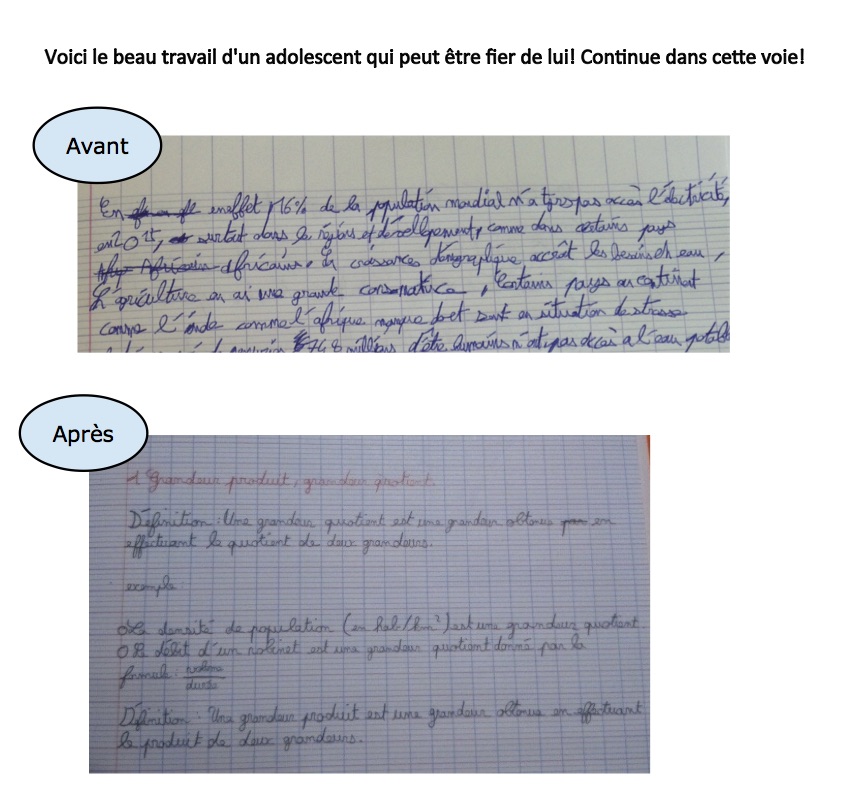 Voici le beau travail d'un adolescent qui peut être fier de lui! Continue dans cette voie!
Avant
En effet 16% de la population mondial n'a tjrs pas accès l'électricité,
en 2015, surtout dans les régions et dévellopement, comme dans certains pays
africains. La croissances démographique accroît les besoins eau,
L'agriculture en ai une grande Certains pays ou continent
comme l'inde comme l'afrique manque et sont en situation de stresse
748 millions d'être humains n'ont pas accès a l'eau potable
Après
1 Grandeur produit, grandeur quotient.
Définition : Une grandeur quotient est une grandeur obtenue par en
effectuant le quotient de deux grandeurs.
exemple
La densité de population (en hab/km²) est une grandeur quotient
O Le débit d'un robinet est une grandeur quotient donné par la
formule : volume
durée
Définition : Une grandeur produit est une grandeur obtenue en effectuant
le produit de deux grandeurs.